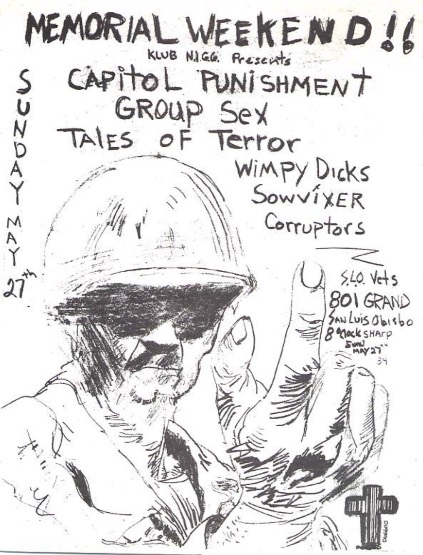 MEMORIAL WEEKEND!!
KLUB N.I.G.G. Presents
CAPITOL PUNISHMENT
GROUP SEX
TALES OF TERROR
WIMPY DICKS
SOWVIXER
Corruptors
SUNDAY MAY 27th
S.L.O. Vets
801 GRAND
SAN LUIS Obisbo
8 O'clock SHARP
SUN
MAY 27th